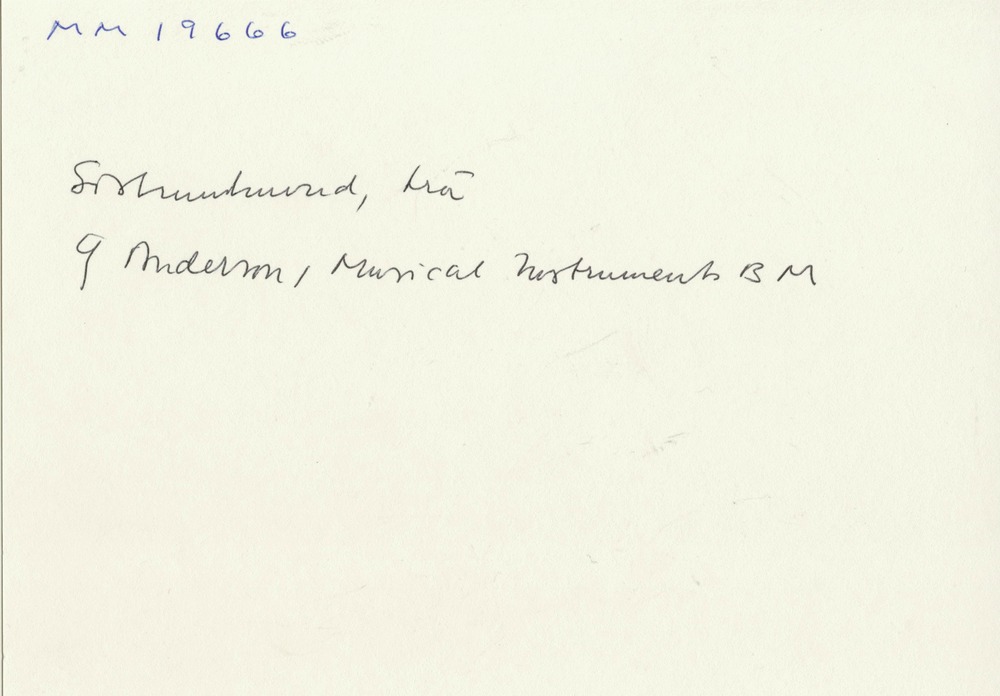 MM 19666
Sistrumhuvud, trä
Anderson, Musical Instruments BM